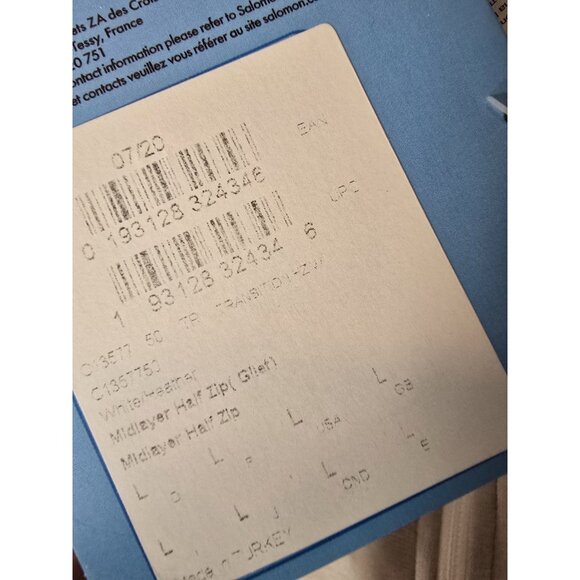 ets ZA des Crois
Tessy, France
20 751
contact information please refer to Salomo
et contacts veuillez vous référer au site salomon.c
07/20
EAN
0 193128 324346
UPC
1 93128 32434 6
C13577 50 TR TRANSITION HZ W
C1357750
White/Heather
Midlayer Half Zip( Gilet)
Midlayer Half Zip
L L L L
D F USA GB
L L L L
I J CND E
Made in TURKEY